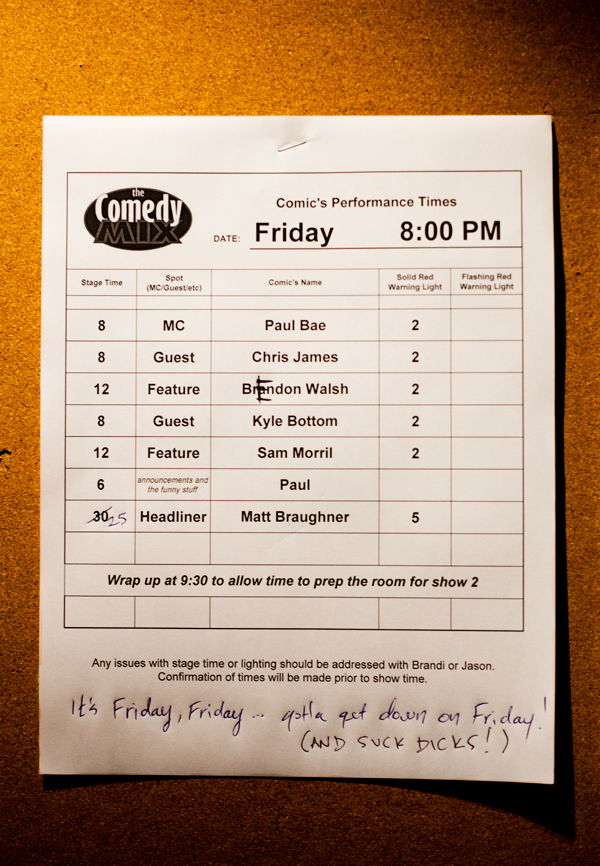 the
Comedy
MIX
Comic's Performance Times
DATE: Friday 8:00 PM
Stage Time Spot (MC/Guest/etc) Comic's Name Solid Red Warning Light Flashing Red Warning Light
8 MC Paul Bae 2
8 Guest Chris James 2
12 Feature BrEndon Walsh 2
8 Guest Kyle Bottom 2
12 Feature Sam Morril 2
6 announcements and the funny stuff Paul
30 25 Headliner Matt Braughner 5
Wrap up at 9:30 to allow time to prep the room for show 2
Any issues with stage time or lighting should be addressed with Brandi or Jason.
Confirmation of times will be made prior to show time.
It's Friday, Friday... gotta get down on Friday!
(AND SUCK DICKS!)